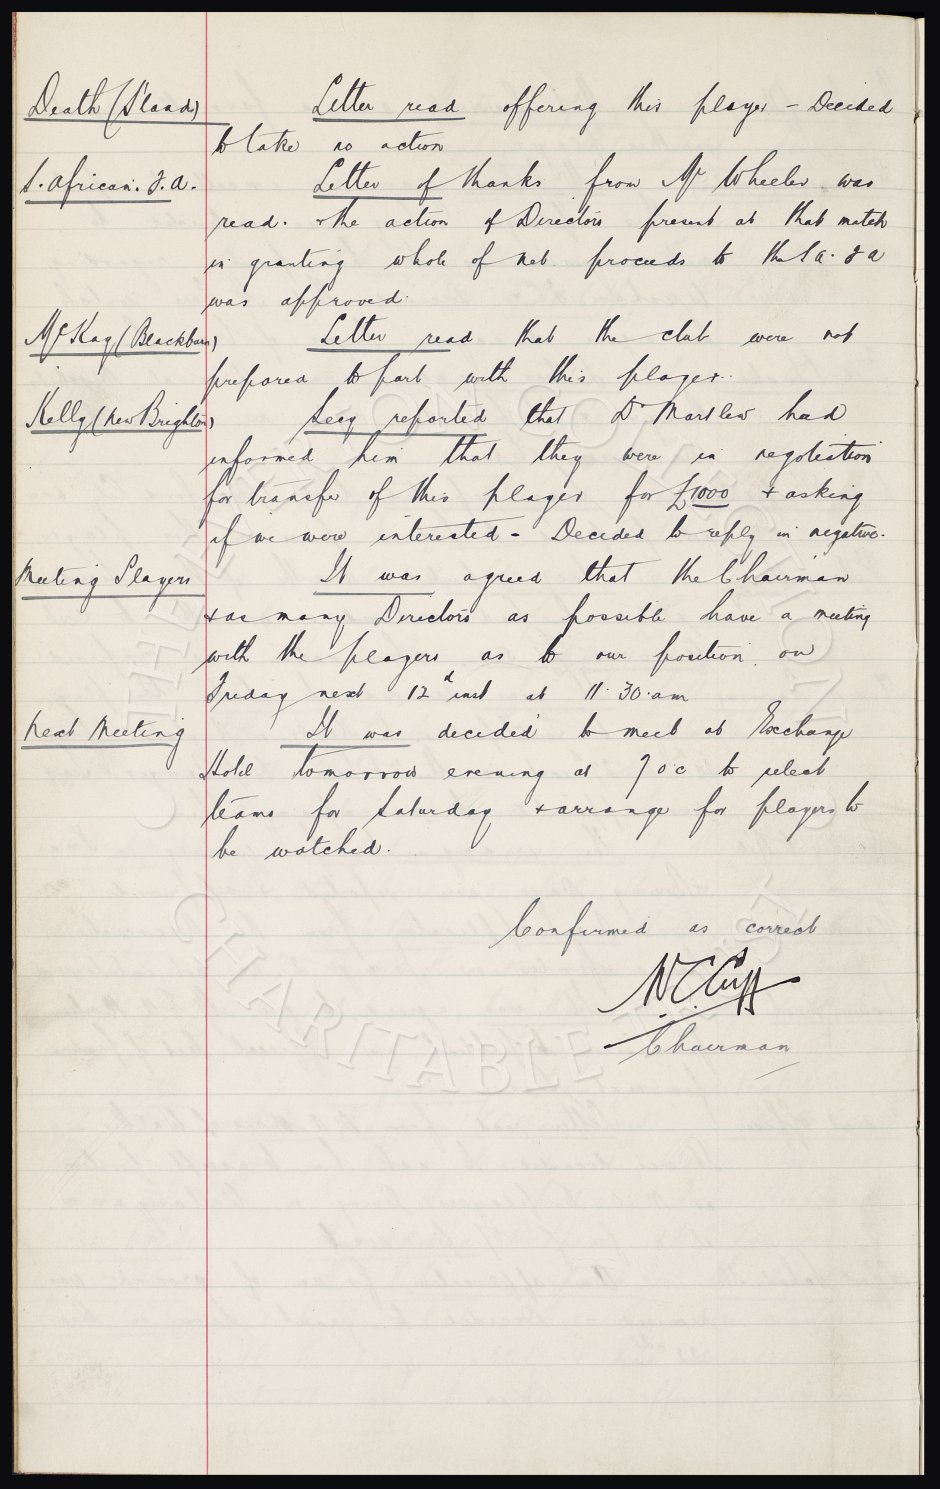 Death (S'land) Letter read offering this player - Decided
to take no action
S. African. F.A. Letter of thanks from Mr Wheeler was
read. & the action of Directors present at that match
in granting whole of net proceeds to the S.A. F A
was approved.
McKay (Blackburn) Letter read that the club were not
prepared to part with this player.
Kelly (New Brighton) Secy reported that Dr Martlew had
informed him that they were in negotiation
for transfer of this player for £1000 & asking
if we were interested - Decided to reply in negative.
Meeting Players It was agreed that the Chairman
& as many Directors as possible have a meeting
with the players as to our position on
Friday next 12d inst at 11.30.am
Next Meeting It was decided to meet at Exchange
Hotel tomorrow evening at 7 o'c to select
teams for Saturday & arrange for players to
be watched.
Confirmed as correct
W C Cuff
Chairman
CHARITABLE